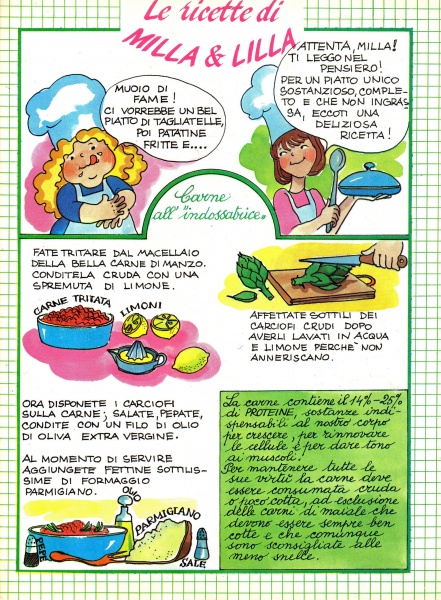 Le ricette di
MILLA & LILLA
MUOIO DI
FAME!
CI VORREBBE UN BEL
PIATTO DI TAGLIATELLE,
POI PATATINE
FRITTE E....
ATTENTA, MILLA!
TI LEGGO NEL
PENSIERO!
PER UN PIATTO UNICO
SOSTANZIOSO, COMPLE-
TO E CHE NON INGRAS
SA, ECCOTI UNA
DELIZIOSA
RICETTA!
Carne
all'"indossatrice"
FATE TRITARE DAL MACELLAIO
DELLA BELLA CARNE DI MANZO.
CONDITELA CRUDA CON UNA
SPREMUTA DI LIMONE.
CARNE TRITATA
LIMONI
AFFETTATE SOTTILI DEI
CARCIOFI CRUDI DOPO
AVERLI LAVATI IN ACQUA
E LIMONE PERCHE' NON
ANNERISCANO.
ORA DISPONETE I CARCIOFI
SULLA CARNE; SALATE, PEPATE,
CONDITE CON UN FILO DI OLIO
DI OLIVA EXTRA VERGINE.
AL MOMENTO DI SERVIRE
AGGIUNGETE FETTINE SOTTILIS-
SIME DI FORMAGGIO
PARMIGIANO.
OLIO
PARMIGIANO
PEPE
SALE
La carne contiene il 14%-25%
di PROTEINE, sostanze indi-
spensabili al nostro corpo
per crescere, per rinnovare
le cellule e per dare tono
ai muscoli.
Per mantenere tutte le
sue virtù la carne deve
essere consumata cruda
o poco cotta, ad esclusione
delle carni di maiale che
devono essere sempre ben
cotte e che comunque
sono sconsigliate alle
meno snelle.